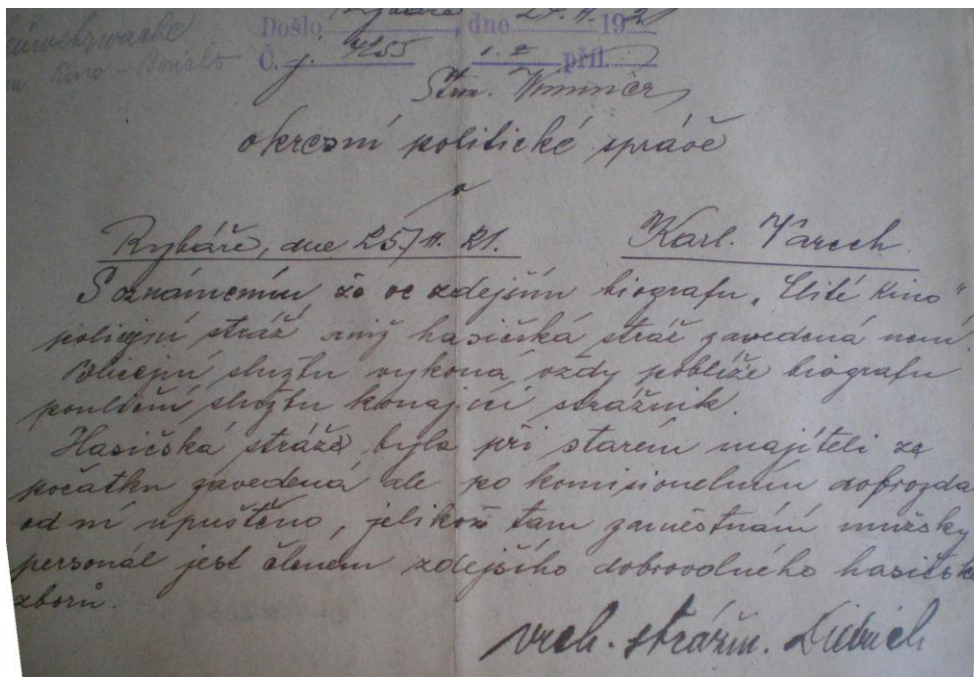 Kino
Došlo Rybáře, dne 25. 11. 1921
Č. j. 4255 příl.
okresní politické správě
v
Rybáře, dne 25./11. 21. Karl. Varech.
S oznámením že ve zdejším biografu „Elité Kino"
policejní stráž aniž hasičská stráž zavedená není.
Policejní službu vykoná vždy poblíže biografu
pouliční službu konající strážník.
Hasičská stráže byla při starém majiteli ze
počátku zavedená ale po komisionelním
od ní upuštěno, jelikož tam zaměstnání mužský
personál jest členem zdejšího dobrovolného hasičsk
zborů.
vrch. strážm.